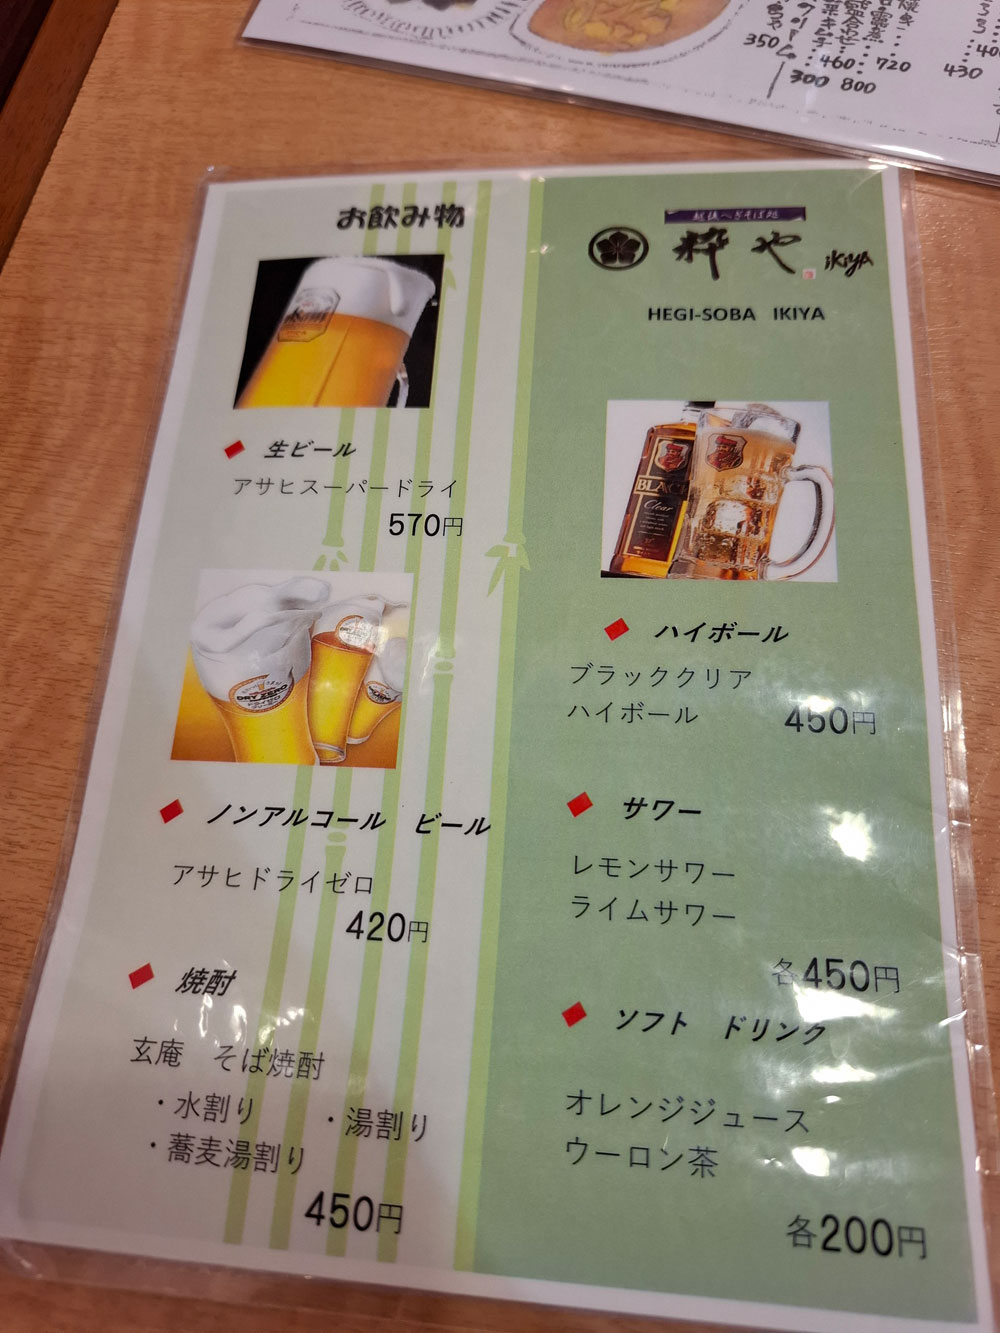 350
460
720
300 800
430
お飲み物
生ビール
アサヒスーパードライ
570円
DRY ZERO
ノンアルコール ビール
アサヒドライゼロ
420円
焼酎
玄庵 そば焼酎
・水割り ・湯割り
・蕎麦湯割り
450円
越後へぎそば処
粋や IKIYA
HEGI-SOBA IKIYA
BLACK
Clear
ハイボール
ブラッククリア
ハイボール 450円
サワー
レモンサワー
ライムサワー
各450円
ソフト ドリンク
オレンジジュース
ウーロン茶
各200円